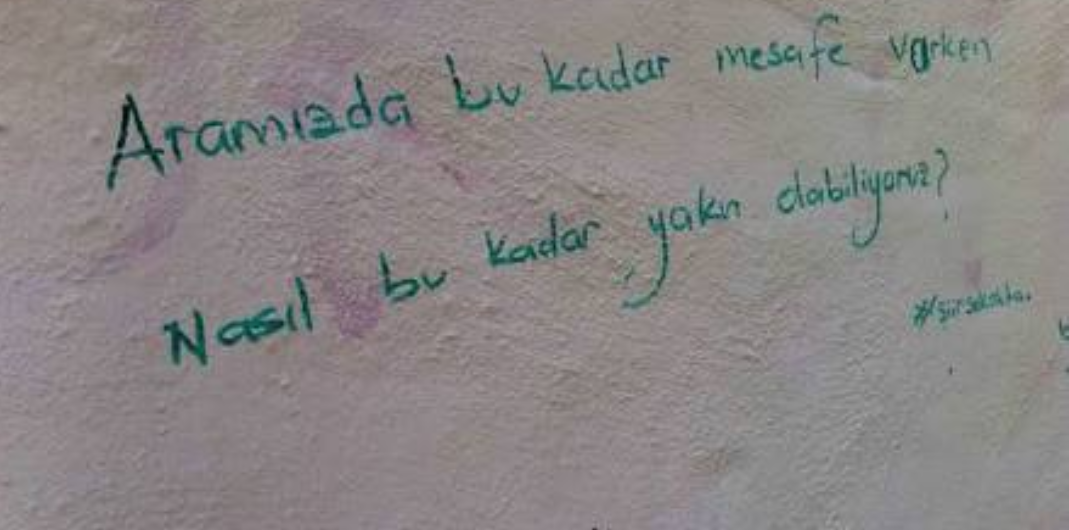 Aramızda bu kadar mesafe varken
Nasıl bu kadar yakın olabiliyoruz?
#şiirsokakta.